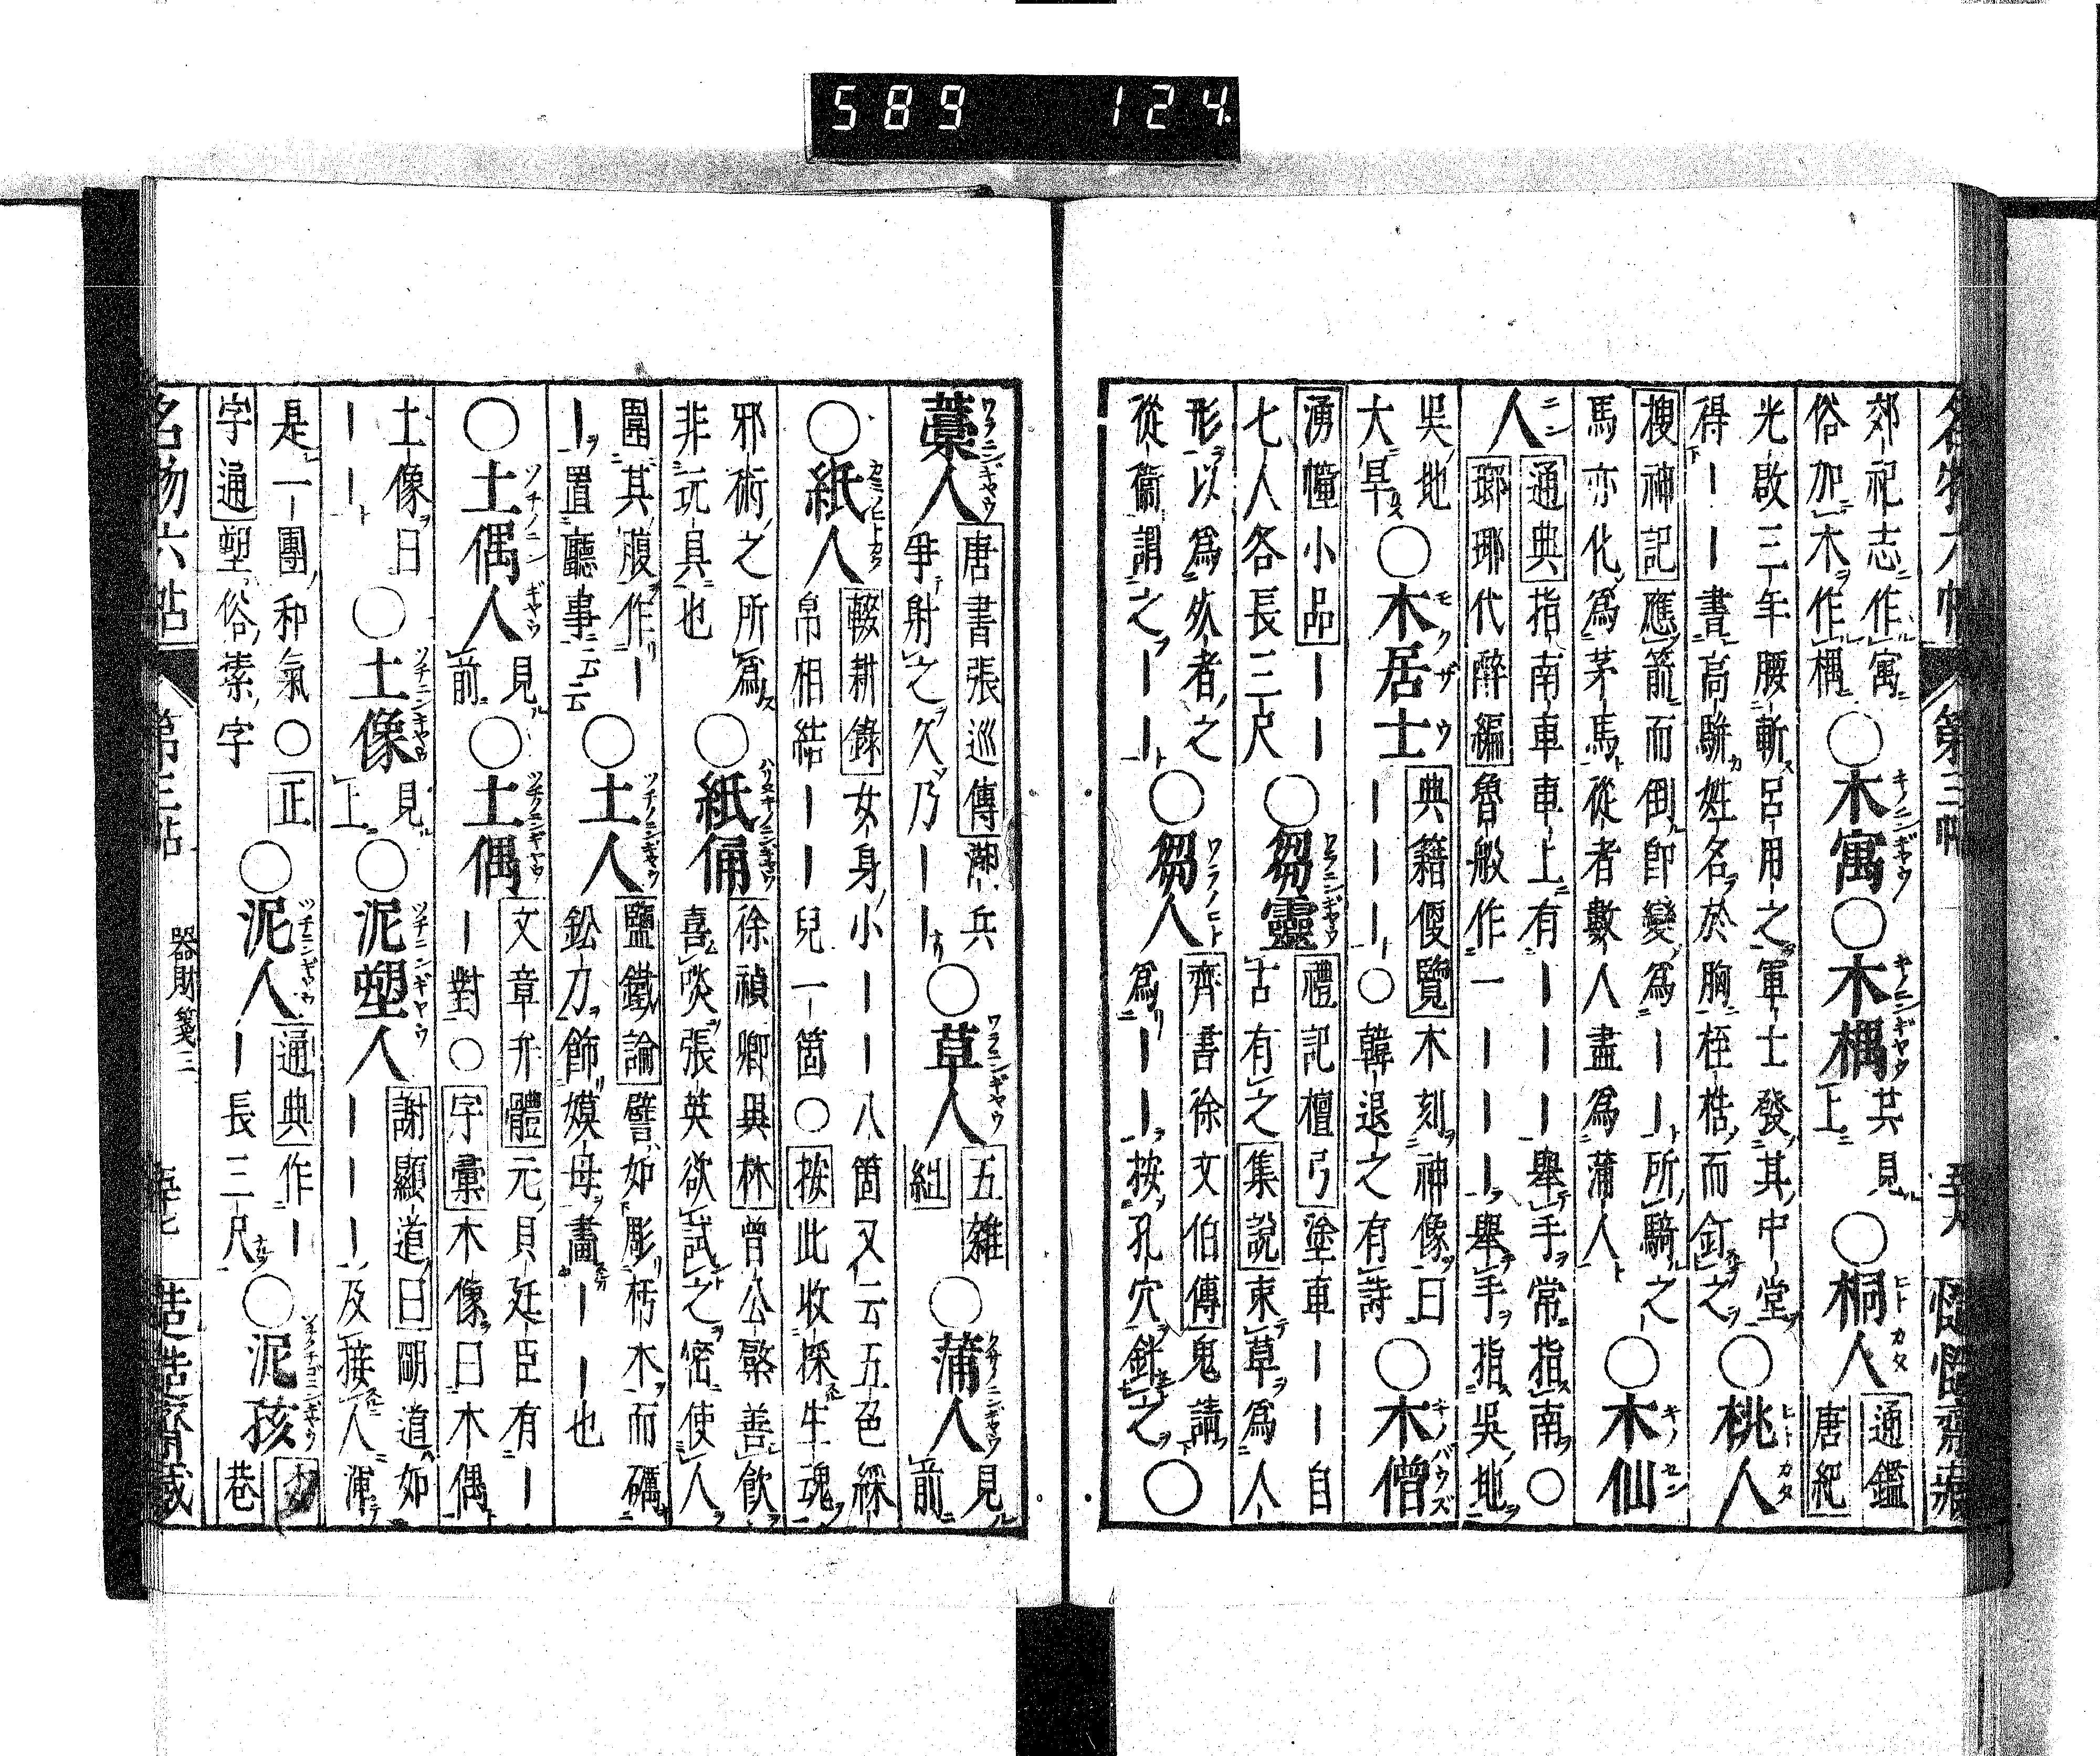 589 124.
名物六帖 第三帖
郊祀志作寓
俗加木作楀
○木寓○木楀
共見
上
○桐人
通鑑
唐紀
光啟三年腰斬呂用之軍士發其中堂
得｜｜｜書高駢姓名於胸桎梏而釘之
○桃人
搜神記應箭而倒即變為｜｜所騎之
馬亦化為茅馬從者數人盡為蒲人
○木仙
人
通典指南車車上有｜｜｜舉手常指南○
瑯琊代醉編魯般作一｜｜｜舉手指吳地
吳地
大旱
○木居士
典籍便覽木刻神像曰
｜｜｜○韓退之有詩
○木僧
湧幢小品｜｜
七人各長三尺
○芻靈
禮記檀弓塗車｜｜自
古有之集說束草為人
形以為死者之
從衞謂之｜｜
○芻人
齊書徐文伯傳鬼請
為｜｜按孔穴針之
○
藁人
唐書張巡傳潮兵
爭射之久乃｜｜
○草人
五雜
組
○蒲人
見
前
○紙人
輟耕錄女身小｜｜八箇又云五色綵
帛相結｜｜兒一箇○按此收採生魂
邪術之所為
非玩具也
○紙俑
徐禎卿異林曾公棨善飲
喜啖張英欲試之密使人
圍其腹作｜
｜置廳事云云
○土人
鹽鐵論譬如彫朽木而礪
鈆刀飾嫫母畫｜｜也
○土偶人
見
前
○土偶
文章弁體元貝廷臣有｜
｜對○字彙木像曰木偶
土像曰
｜｜
○土像
見
上
○泥塑人
謝顯道曰明道如
｜｜｜及接人渾
是一團和氣○正
字通塑俗素字
○泥人
通典作｜
｜長三尺
○泥孩
巷
名物六帖 第三帖 器財箋三